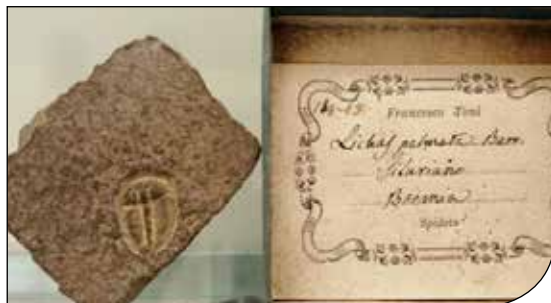 Francesco Toni
Lichas palmata Barr.
Siluriano
Boemia
Spoleto